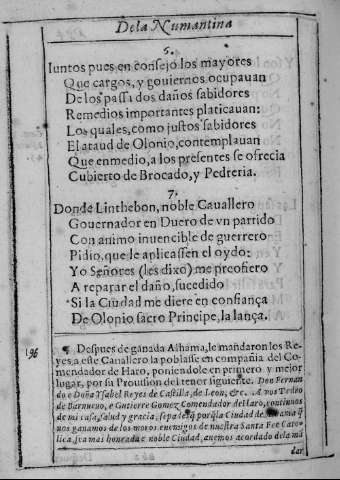 De la Numantina
6.
Iuntos pues en consejo los mayores
Que cargos, y gouiernos ocupauan
De los passados daños sabidores
Remedios importantes platicauan:
Los quales, como justos sabidores
El ataud de Olonio, contemplauan
Que enmedio, a los presentes se ofrecia
Cubierto de Brocado, y Pedreria.
7.
Donde Linthebon, noble Cauallero
Gouernador en Duero de vn partido
Con animo inuencible de guerrero
Pidio, que le aplicassen el oydo:
Yo Señores (les dixo) me profiero
A reparar el daño, sucedido
Si la Ciudad me diere en confiança
De Olonio sacro Principe, la lança.
196
¶ Despues de ganada Alhama, le mandaron los Re-
yes, a este Cauallero la poblasse en compañia del Co-
mendador de Haro, poniendole en primero y mejor
lugar, por su Prouision del tenor siguiente. Don Fernan
do e Doña Ysabel Reyes de Castilla, de Leon, &c. A vos Pedro
de Barnueuo, e Gutierre Gomez Comendador del Haro, continuos
de mi casa, salud y gracia, sepades q̃ porq̃ la Ciudad de Alhama q̃
nos ganamos de los moros enemigos de nuestra Santa Fee Cato-
lica, sea mas honrada e noble Ciudad, auemos acordado de la mã
dar